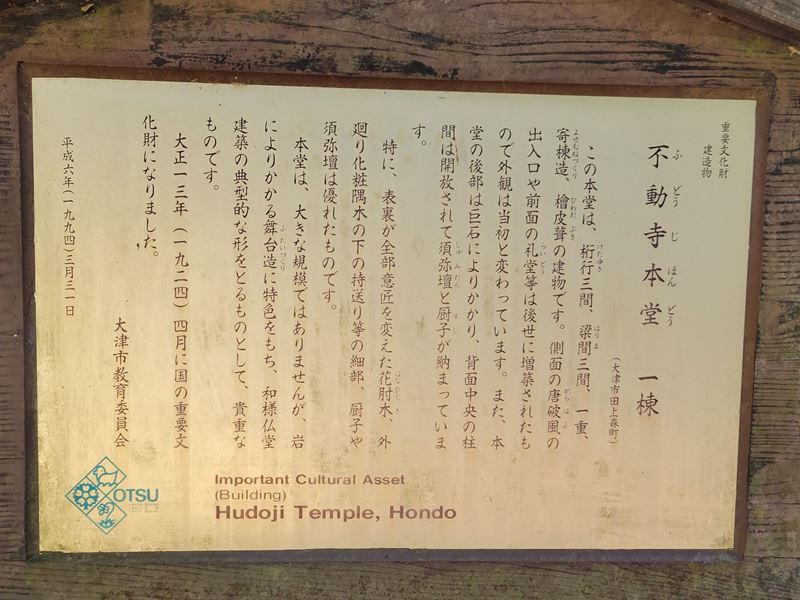 重要文化財
建造物
不動寺本堂 一棟
ふどうじほんどう
(大津市田上森町)
この本堂は、桁行三間、梁間三間、一重、
寄棟造、檜皮葺の建物です。側面の唐破風の
出入口や前面の礼堂等は後世に増築されたも
ので外観は当初と変わっています。また、本
堂の後部は巨石によりかかり、背面中央の柱
間は開放されて須弥壇と厨子が納まっていま
す。
特に、表裏が全部意匠を変えた花肘木、外
廻り化粧隅木の下の持送り等の細部、厨子や
須弥壇は優れたものです。
本堂は、大きな規模ではありませんが、岩
によりかかる舞台造に特色をもち、和様仏堂
建築の典型的な形をとるものとして、貴重な
ものです。
大正一三年(一九二四)四月に国の重要文
化財になりました。
平成六年(一九九四)三月三一日
大津市教育委員会
OTSU
Important Cultural Asset
(Building)
Hudoji Temple, Hondo